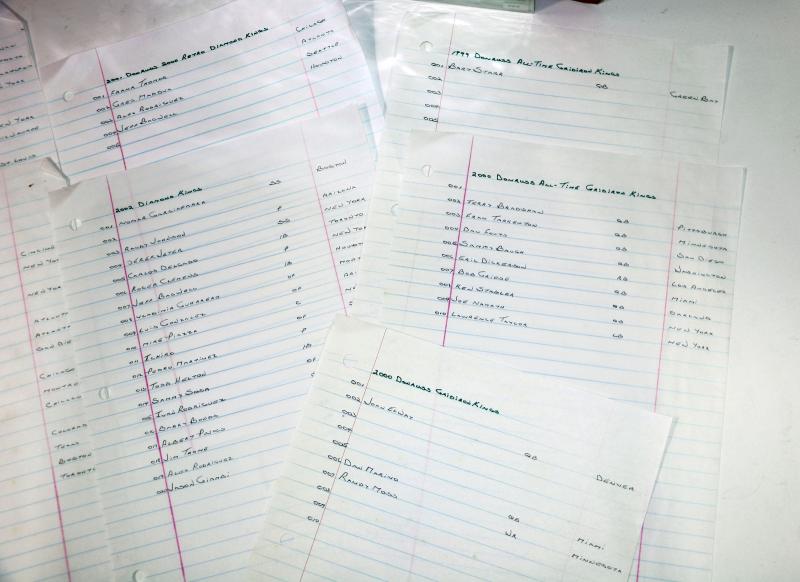 2001 DONRUSS 2000 RETRO DIAMOND KINGS
001 FRANK THOMAS CHICAGO
002 GREG MADDUX ATLANTA
003 ALEX RODRIGUEZ SEATTLE
004 JEFF BAGWELL HOUSTON
005
1999 DONRUSS ALL-TIME GRIDIRON KINGS
001 BART STARR QB GREEN BAY
002
003
004
005
2002 DIAMOND KINGS
001 NOMAR GARCIAPARRA SS BOSTON
002
003 RANDY JOHNSON P ARIZONA
004 DEREK JETER SS NEW YORK
005 CARLOS DELGADO 1B TORONTO
006 ROGER CLEMENS P NEW YO
007 JEFF BAGWELL 1B HOUST
008 VLADIMIR GUERRERO OF
009 LUIS GONZALEZ OF
010 MIKE PIAZZA C
011 ICHIRO
012 PEDRO MARTINEZ
013 TODD HELTON 1B
014 SAMMY SOSA OF
015 IVAN RODRIGUEZ
016 BARRY BONDS
017 ALBERT PUJOLS
018 JIM THOME
019 ALEX RODRIGUEZ
020 JASON GIAMBI
2000 DONRUSS ALL-TIME GRIDIRON KINGS
001
002 TERRY BRADSHAW QB PITTSBURGH
003 FRAN TARKENTON QB MINNESOTA
004 DAN FOUTS QB SAN DIEGO
005 SAMMY BAUGH QB WASHINGTON
006 ERIC DICKERSON RB LOS ANGELES
007 BOB GRIESE QB MIAMI
008 KEN STABLER QB OAKLAND
009 JOE NAMATH QB NEW YORK
010 LAWRENCE TAYLOR LB NEW YORK
2000 DONRUSS GRIDIRON KINGS
001
002 JOHN ELWAY QB DENVER
003
004
005
006 DAN MARINO QB MIAMI
007 RANDY MOSS WR MINNESOTA
008
009
010
NEW YORK
ST. LOUIS
NEW YORK
ATLANTA
ATLANTA
SAN DIE
CHICAGO
MONTRE
CHICAGO
COLORAD
TEXAS
BOSTON
TORONTO